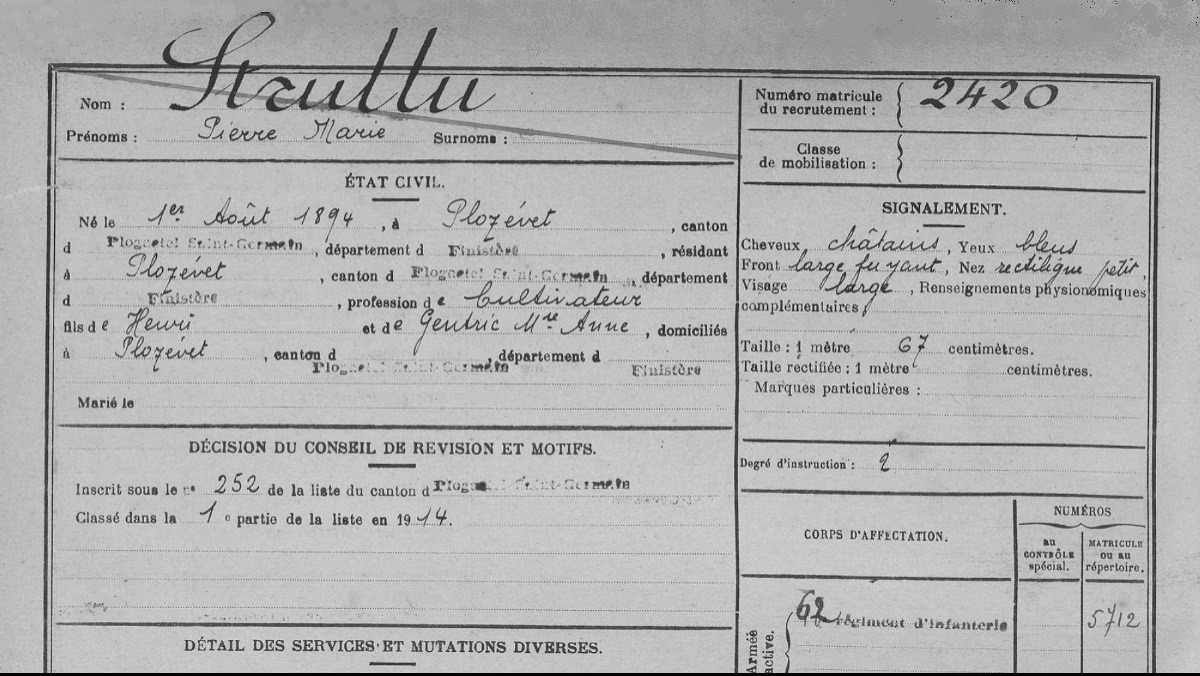 Nom : Strullu
Prénoms : Pierre Marie Surnoms :
ÉTAT CIVIL.
Né le 1er Août 1894, à Plozévet, canton
d Plogastel Saint-Germain, département d Finistère, résidant
à Plozévet, canton d Plogastel Saint-Germain, département
d Finistère, profession de Cultivateur
fils de Henri et de Gentric Mie Anne, domiciliés
à Plozévet, canton d Plogastel Saint-Germain, département d Finistère
Marié le
DÉCISION DU CONSEIL DE REVISION ET MOTIFS.
Inscrit sous le n° 252 de la liste du canton d Plogastel Saint-Germain
Classé dans la 1e partie de la liste en 1914.
DÉTAIL DES SERVICES ET MUTATIONS DIVERSES.
Numéro matricule
du recrutement : 2420
Classe
de mobilisation :
SIGNALEMENT.
Cheveux châtains, Yeux bleus
Front large fuyant, Nez rectiligne petit,
Visage large, Renseignements physionomiques
complémentaires
Taille : 1 mètre 67 centimètres.
Taille rectifiée : 1 mètre centimètres.
Marques particulières :
Degré d'instruction : 2
CORPS D'AFFECTATION.
NUMÉROS
au
CONTRÔLE
spécial.
MATRICULE
ou au
répertoire.
Armée
active.
62 régiment d'infanterie
5712